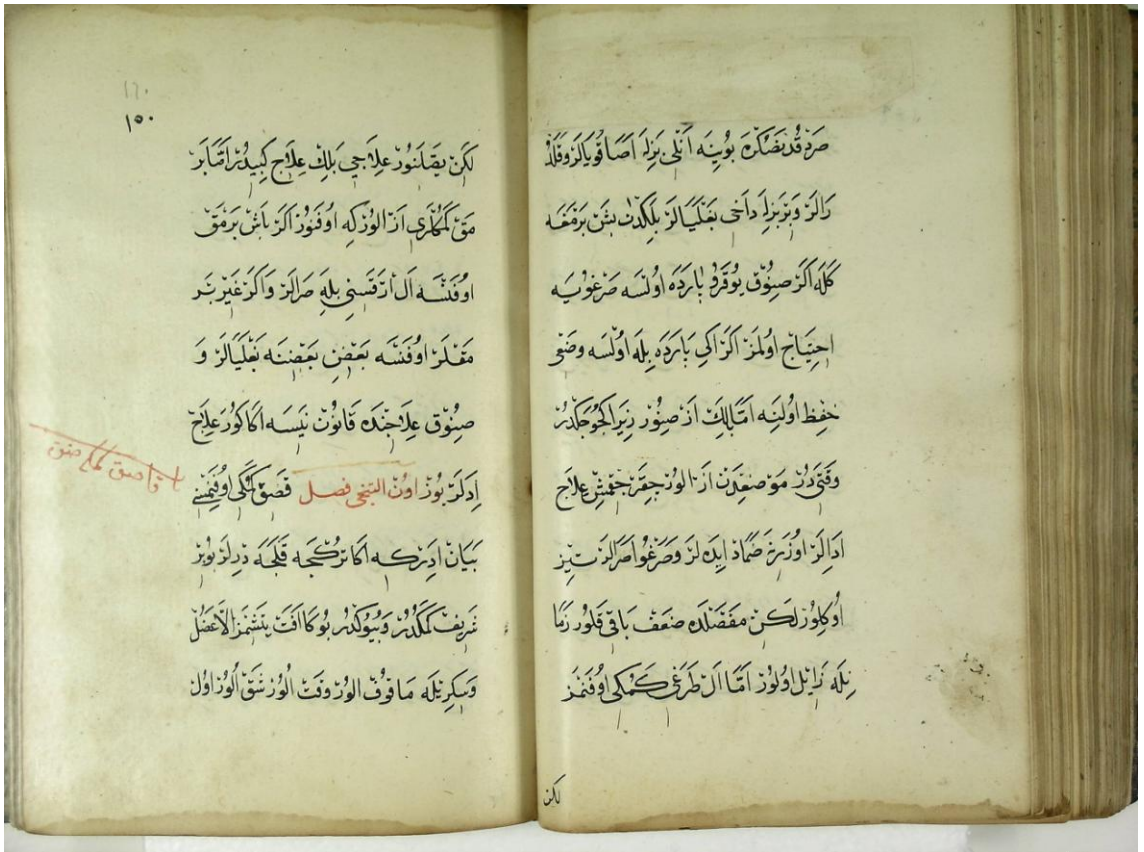 صَرْدُقْدَنْصُكْرَه بُويِنَه اَنْلِى بَزِلَه اَصَاقُويَالَرْ وَقَلَدُ
رَالَرْ وَبِرْ بَزِلَه دَاخِى بَغْلَيَالَرْ بِلَكْدَنْ بَشْ بَرْمَغَه
كَلَه اَكَرْ صِنُوقْ يُوقَرُو يَارَدَه اُولْسَه صَرْغُويَه
اِحْتِيَاجْ اُولْمَزْ اَكَرْ اَكِى يَارَدَه بِلَه اُولْسَه وَضْعِى
حِفِظْ اُولِنَه اَمَّا بِلَكْ اَزْ صِنُورْ زِيرَا كُجُوجَكْدُرْ
وَقَتِىدُرْ مَوْضِعِنْدَنْ اَزْ اَلُورْ جِقَرْ جِقْمِشْ عِلَاجْ
اِدَالَرْ اُوزَرِنَه ضِمَادْ اِيدَه لَرْ وَصَرْغُوا صَرَالَرْ تِيزْ
اُوكِلُورْ لَكِنْ مَفْصَلْدَه ضَعَفْ بَاقِى قَلُورْ زَمَا
نِلَه زَايِلْ اُولُورْ اَمَّا اَلْ طَرَغِى كَمُكِى اُوفَنْمَزْ
لكن
١٦٠
١٥٠
لَكِنْ يَصَّلَنُورْ عِلَاجِى بِلِكْ عِلَاجِ كِبِيدُرْ اَمَّا بَرْ
مَقْ كَمُكْلَرِى اَزْ اَلُورْكِه اُوفَنُورْ اَكَرْ بَاشْ بَرْمَقْ
اُوفَنْسَه اَلْ اَرْقَسِنِى بِلَه صَرَالَرْ وَاَكَرْ غَيْرِ بَرْ
مَقْلَرْ اُوفَنْسَه بَعْضِنِ بَعْضِنَه بَغْلَيَالَرْ وَ
صِنُوقْ عِلَاجِنْدَه قَانُونْ نَيْسَه اَكَاكُورَ عِلَاجْ
اِدَلَرْ بُوْرْ اُونْ التِنْجِى فصل قَصِقْ كَمُكِى اُوفَنْمِسْنِى
بَيَانْ اِدَرْكِه اَكَا تُرْكْجَه قَلْجَه دِرْلَرْ بُوبِرْ
شَرِيفْ كَمُكْدُرْ وَبُيُوكْدُرْ بُوكَا اَفَتْ يَتِشْمَزْ اِلَّا عَضَلْ
وَسِكِرِيلَه مَاقُوفْ اَلُورْ وَقَتْ اَلُورْ شَقْ اَلُورْ اُولْ